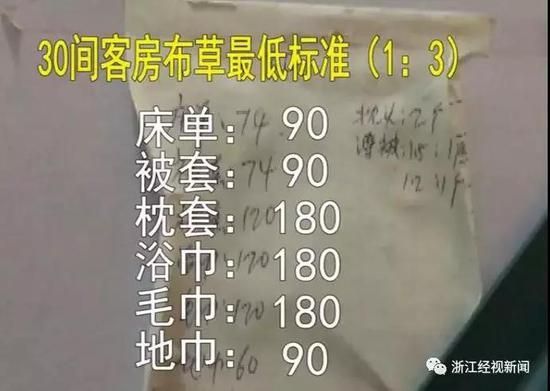 30间客房布草最低标准（1：3）
床单：74 90
被套：74 90
枕套：120 180
浴巾：120 180
毛巾：120 180
地巾：60 90
浙江经视新闻